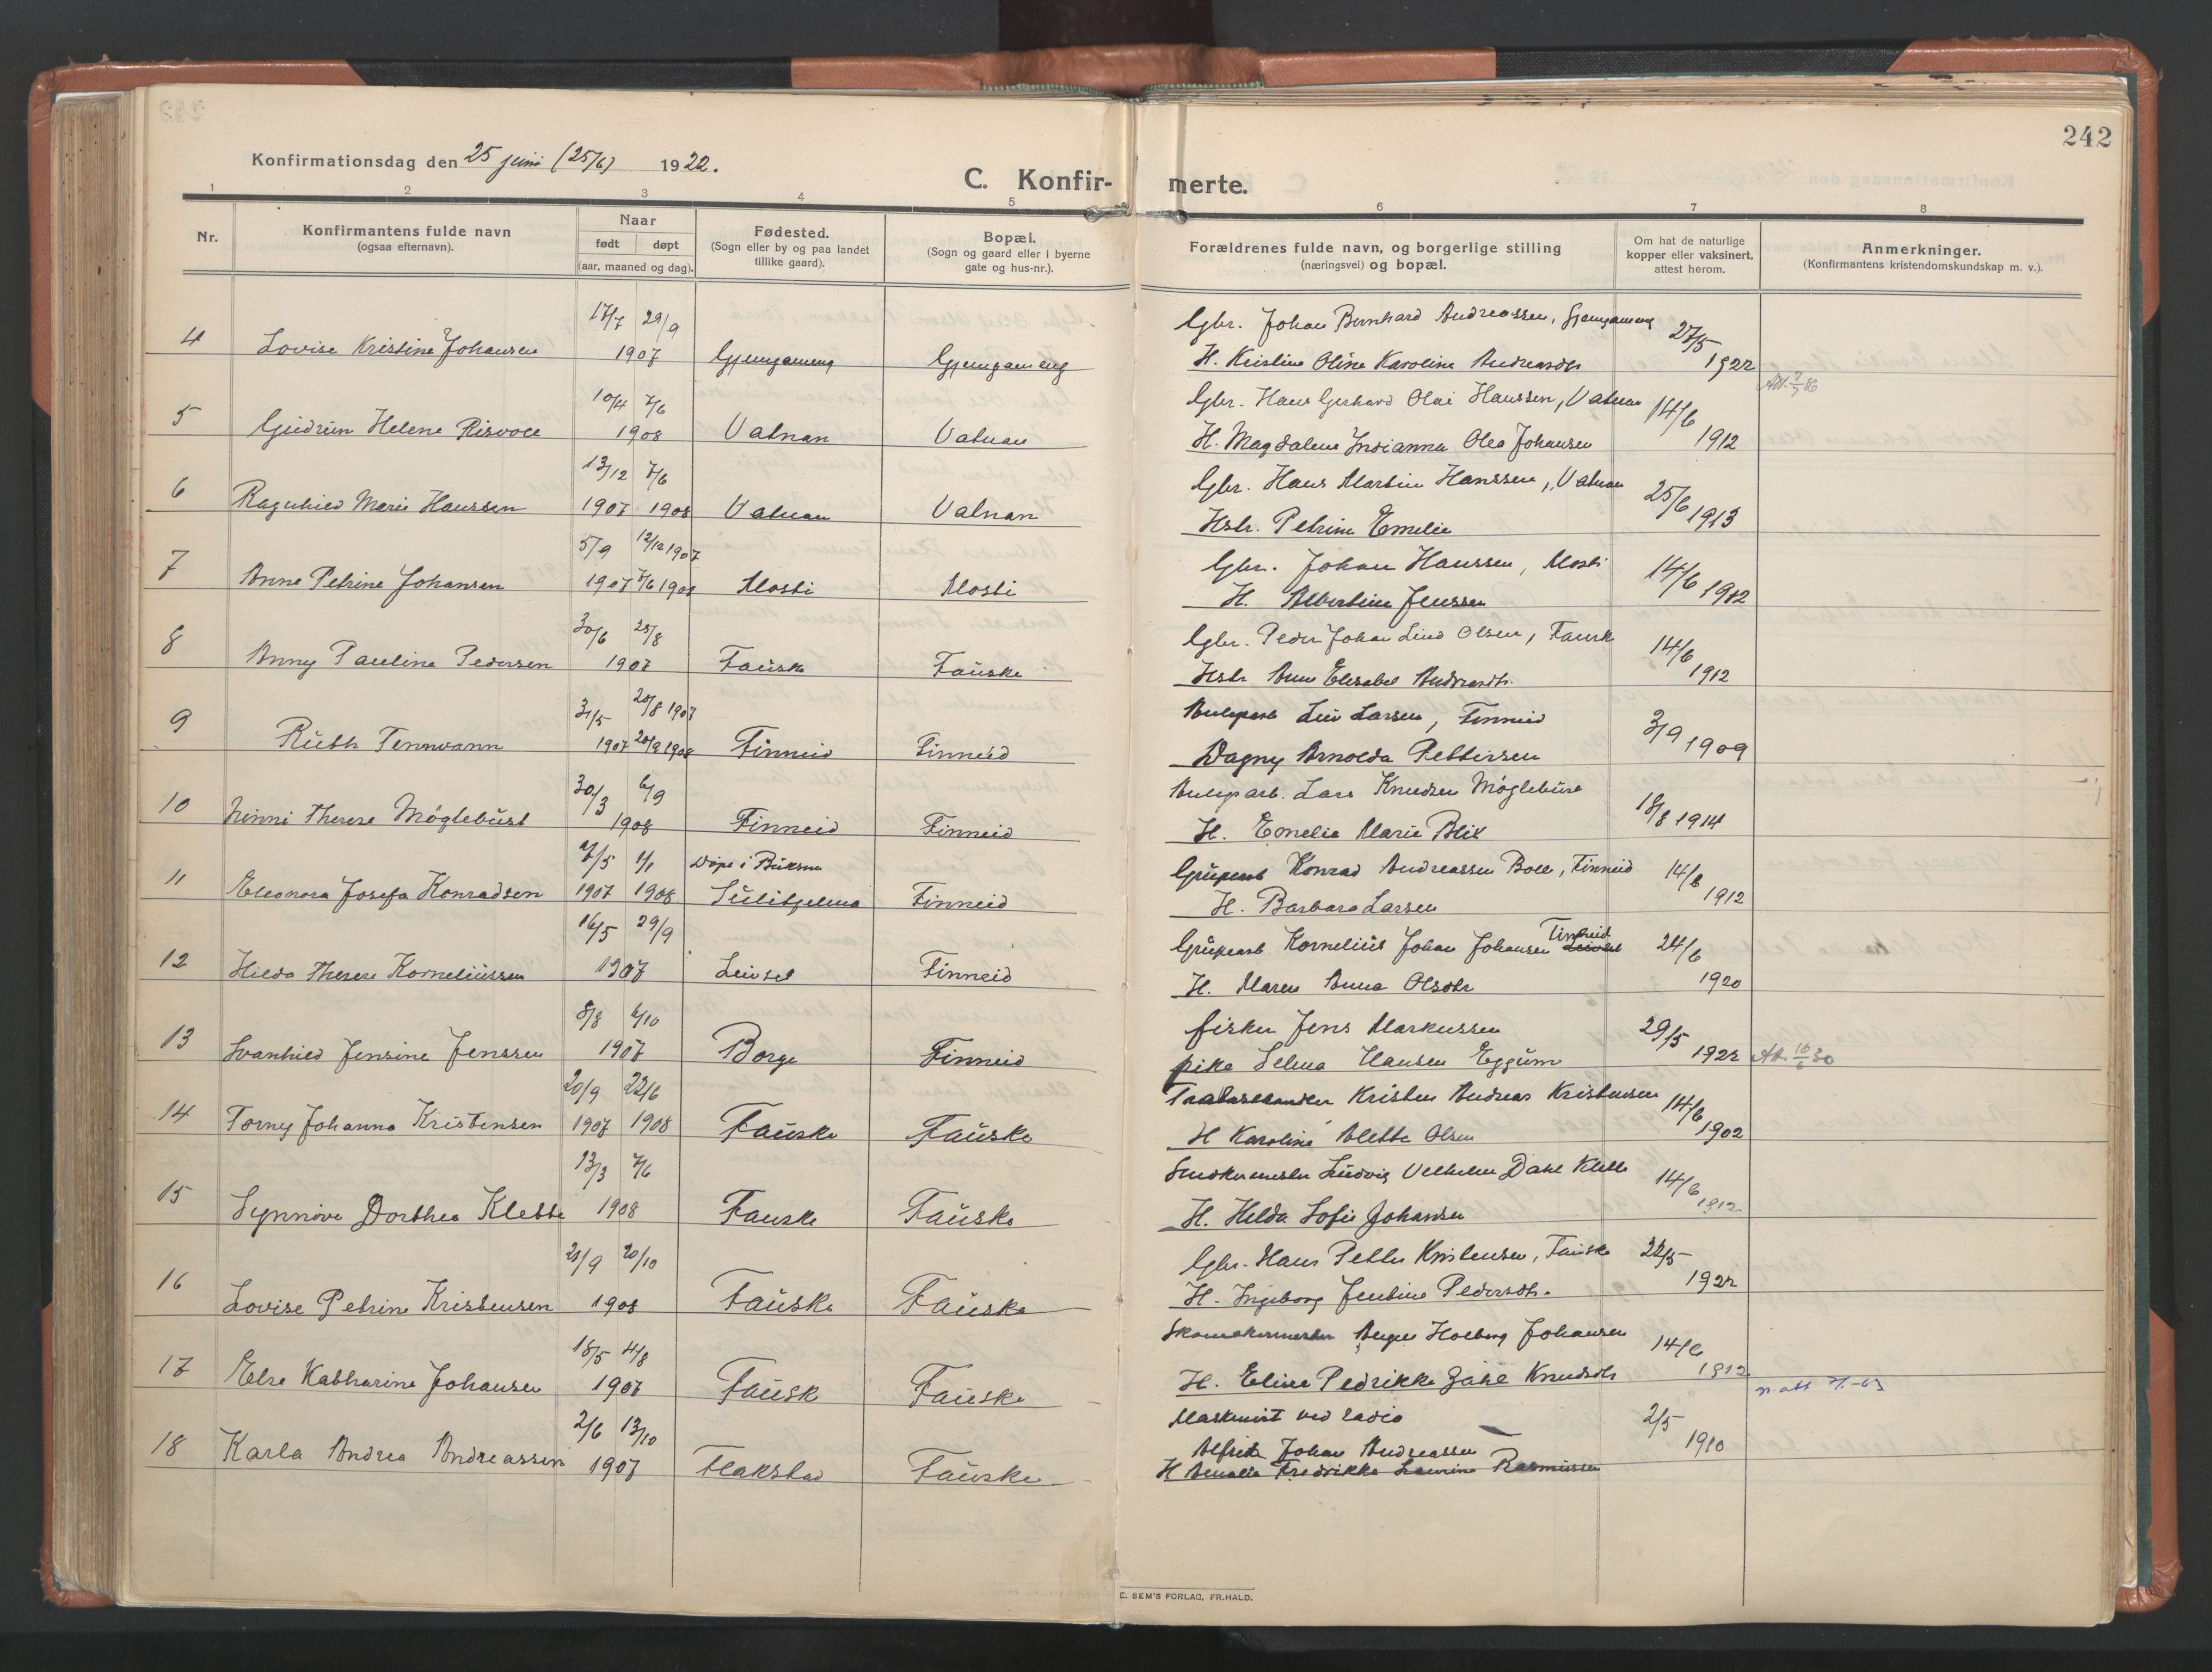 242
Konfirmationsdag den 25 juni (25/6) 1922.
C. Konfir- merte.
1 2 3 4 5 6 7 8
Nr.
Konfirmantens fulde navn
(ogsaa efternavn).
Naar
født døpt
(aar, maaned og dag).
Fødested.
(Sogn eller by og paa landet
tillike gaard).
Bopæl.
(Sogn og gaard eller i byerne
gate og hus-nr.).
Forældrenes fulde navn, og borgerlige stilling
(næringsvei) og bopæl.
Om hat de naturlige
kopper eller vaksinert,
attest herom.
Anmerkninger.
(Konfirmantens kristendomskundskap m. v.).
17/7 29/9 Gbr. Johan Bernhard Andreassen, Gjemgameng 27/5
4 Lovise Kristine Johansen 1907 Gjemgameng Gjemgameng H. Kristine Oline Karoline Andreasdtr 1922
10/4 7/6 Gbr. Hans Gerhard Olai Hanssen, Vatnan 14/6
5 Gudrun Helene Risvoll 1908 Vatnan Vatnan H. Magdalena Indianna Olea Johansen 1912
13/12 7/6 Gbr. Hans Martin Hanssen, Vatnan 25/6
6 Ragnhild Marie Hanssen 1907 1908 Vatnan Valnan Hstr. Petrine Emelie 1913
5/9 12/12 1907 Gbr. Johan Hanssen, Mosti 14/6
7 Anne Petrine Johansen 1907 7/6 1908 Mosti Mosti H. Albertine Jenssen 1912
30/6 25/8 Gbr. Peder Johan Lind Olsen, Fausk 14/6
8 Anny Pauline Pedersen 1907 Fauske Fauske Hstr Anne Elisabet Andreasdtr. 1912
31/5 20/8 1907 Anlegsarb Leiv Larsen, Finneid 3/9
9 Ruth Tennvann 1907 20/9 1908 Finneid Finneid Dagny Arnolda Pettersen 1909
30/3 6/9 Anlegsarb. Lars Knudsen Møglebust 18/8
10 Ninni Therese Møglebust 1908 Finneid Finneid H. Emelie Marie Blix 1914
7/5 1/1 Døpt i Buksnes Grubearb Konrad Andreassen Boll, Finneid 14/6
11 Eleonora Josefa Konradsen 1907 1908 Sulitjelma Finneid H. Barbara Larsen 1912
16/5 29/9 Grubearb Kornelius Johan Johansen Finneid 24/6
12 Hilda Therese Korneliussen 1907 Leivset Finneid H. Maren Anna Olsdtr 1920
8/8 6/10 fisker Jens Markussen 29/5
13 Svanhild Jensine Jenssen 1907 Borge Finneid pike Selma Hansen Eggum 1922 Att. 16/6 30
20/9 22/6 Kristen Andreas Kristensen 14/6
14 Torny Johanna Kristensen 1907 1908 Fauske Fauske H Karoline Alette Olsen 1902
13/3 7/6 Snedkermester Ludvig Vilhelm Dahl Klette 14/6
15 Synnøve Dorthea Klette 1908 Fauske Fauske H. Hilda Sofie Johansen 1912
21/9 20/10 Gbr. Hans Petter Kristensen, Fauske 22/5
16 Lovise Petrine Kristensen 1908 Fauske Fauske H. Ingeborg Jentine Pedersdtr. 1922
18/5 4/8 Skomakermester Holberg Johansen 14/6
17 Else Katharine Johansen 1907 Fausk Fauske H. Eline Pedrikke Knudsdtr 1912
2/6 13/10 Maskinist ved radio 2/5
18 Karla Andrea Andreassen 1907 Flakstad Fauske Alfred Johan Andreassen 1910
H Amalie Fredrikke Laurine Rasmussen
E. SEM'S FORLAG, FR.HALD.